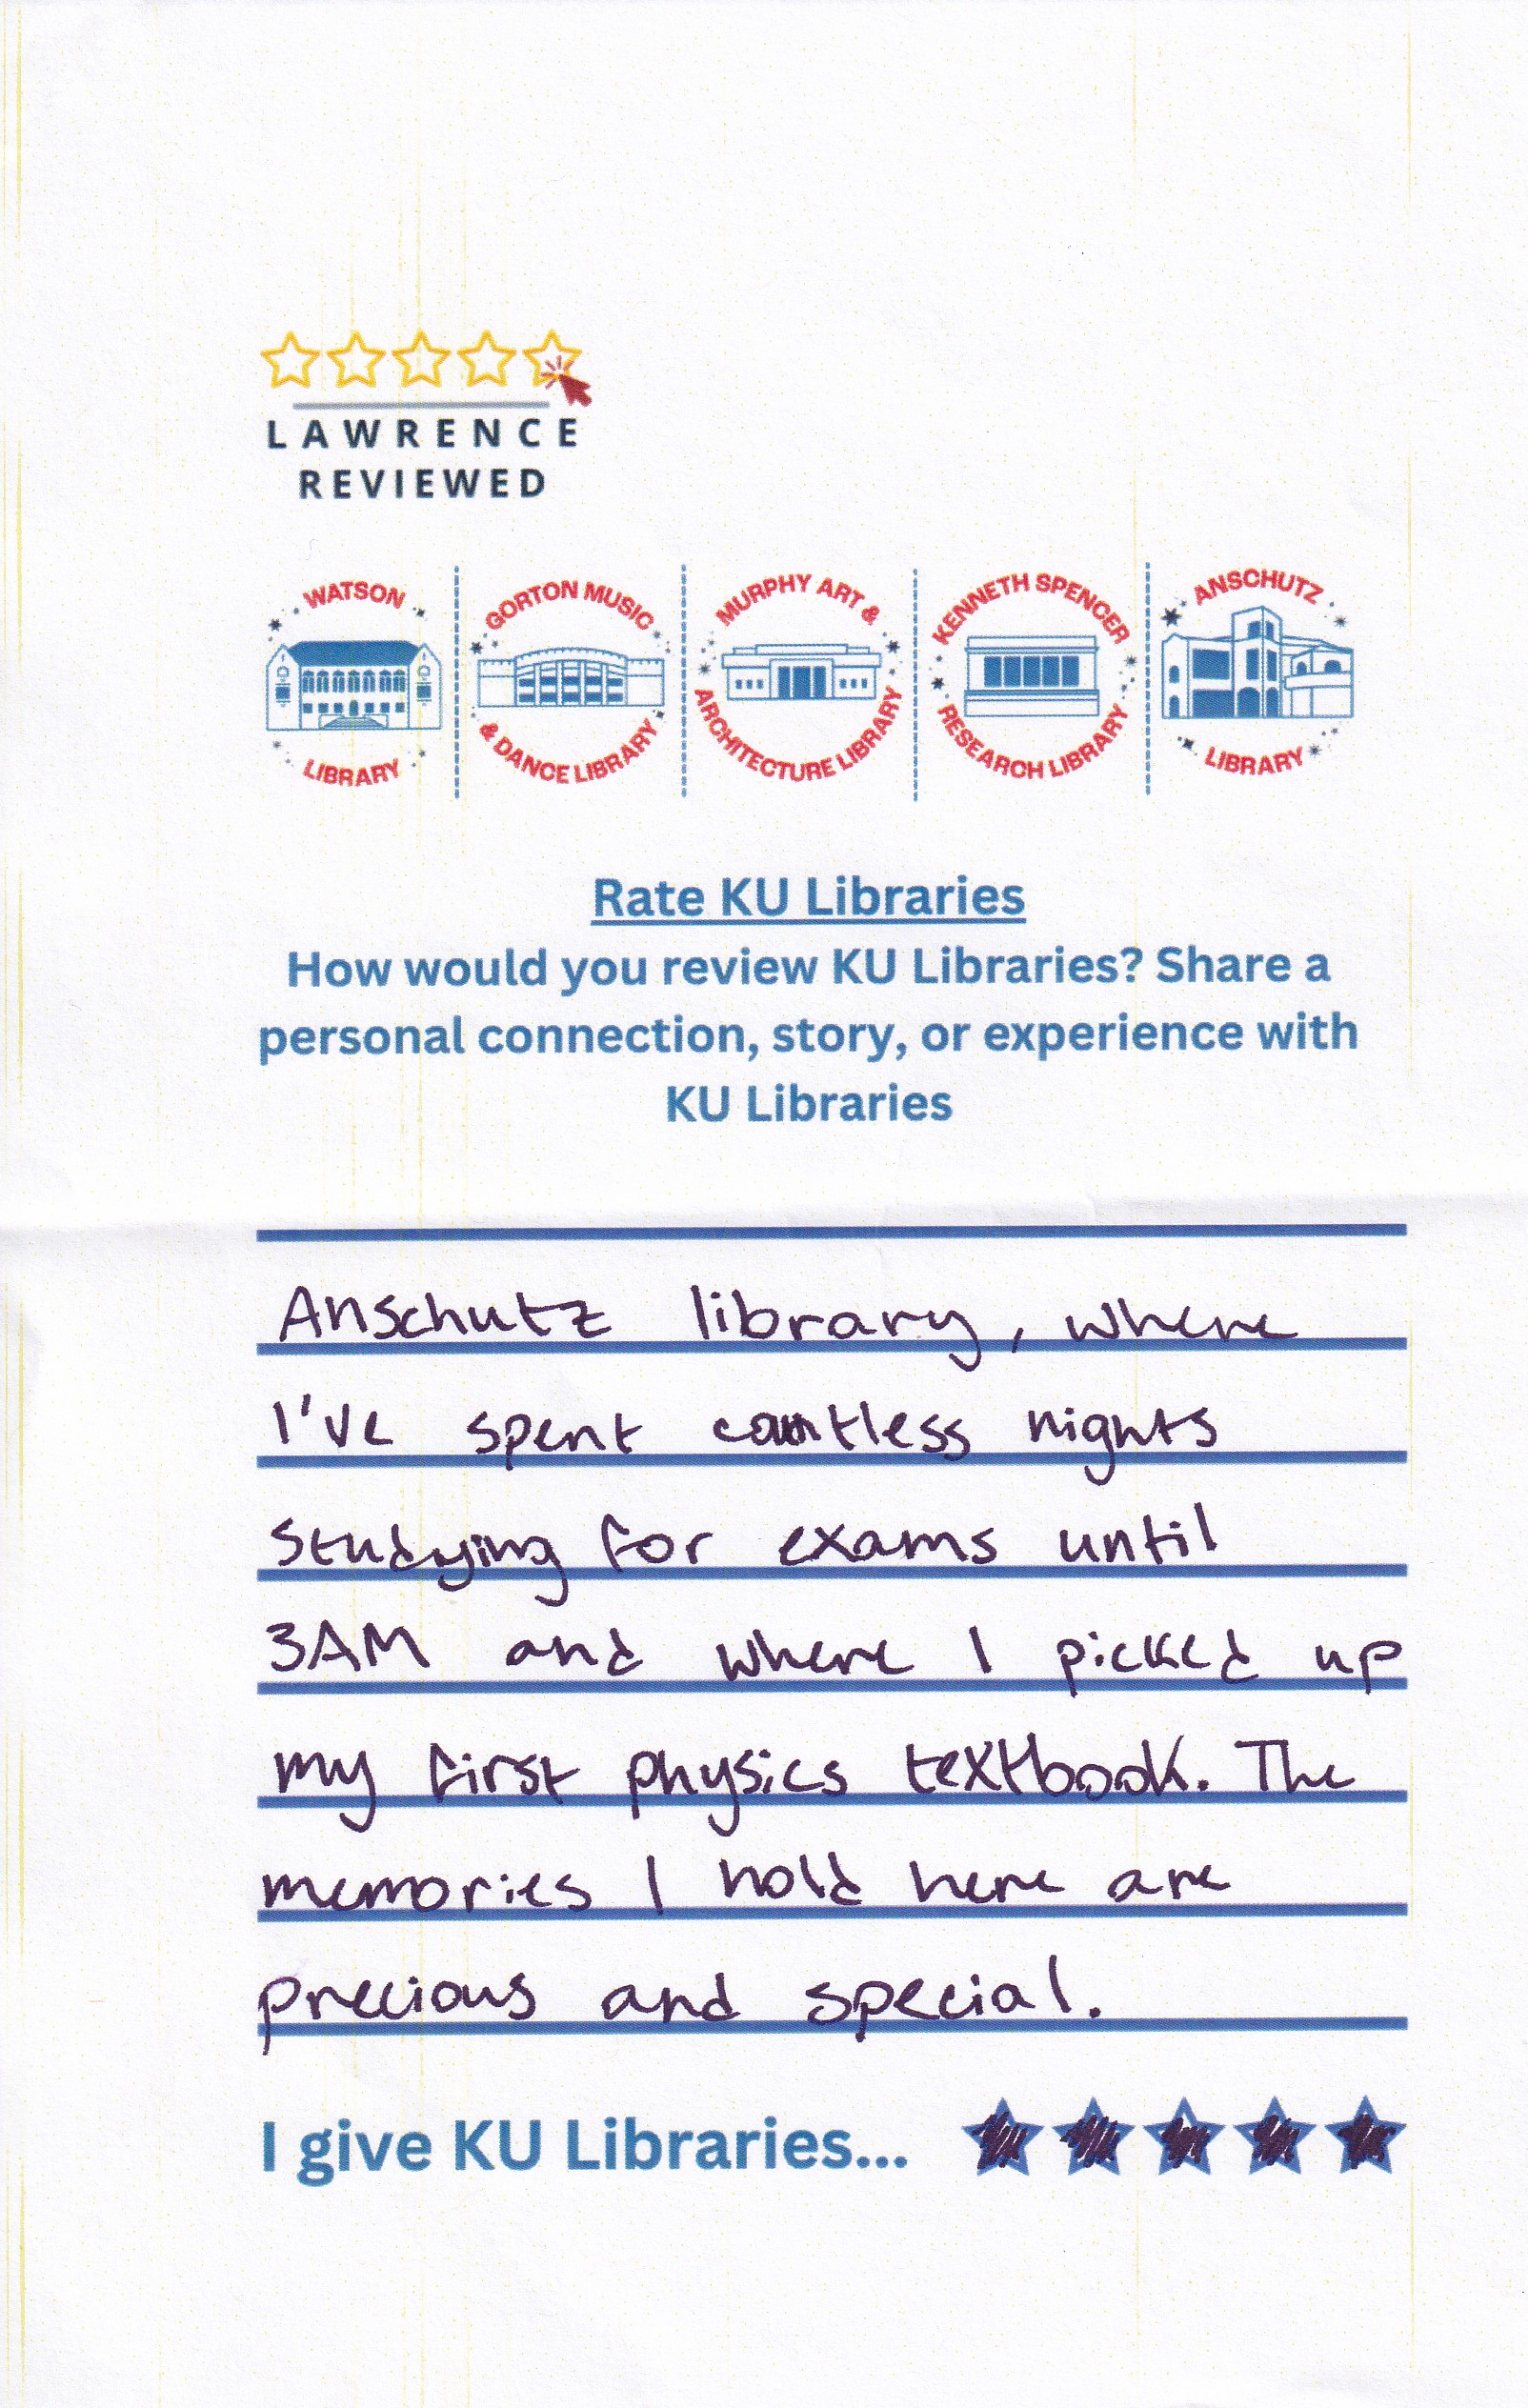 LAWRENCE
REVIEWED
WATSON
LIBRARY
GORTON MUSIC
& DANCE LIBRARY
MURPHY ART &
ARCHITECTURE LIBRARY
KENNETH SPENCER
RESEARCH LIBRARY
ANSCHUTZ
LIBRARY
Rate KU Libraries
How would you review KU Libraries? Share a
personal connection, story, or experience with
KU Libraries
Anschutz library, where
I've spent countless nights
studying for exams until
3AM and where I picked up
my first physics textbook. The
memories I hold here are
precious and special.
I give KU Libraries...